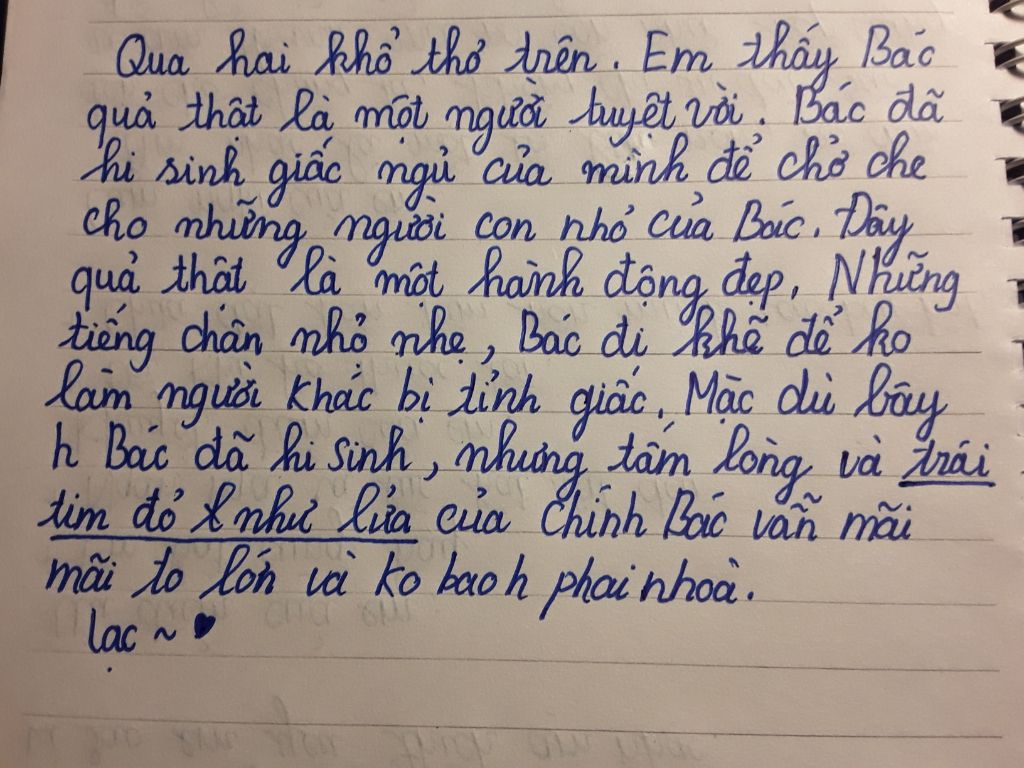 Qua hai khổ thơ trên. Em thấy Bác
quả thật là một người tuyệt vời. Bác đã
hi sinh giấc ngủ của mình để chở che
cho những người con nhỏ của Bác. Đây
quả thật là một hành động đẹp, Những
tiếng chân nhỏ nhẹ, Bác đi khẽ để ko
làm người khác bị tỉnh giấc. Mặc dù bây
h Bác đã hi sinh, nhưng tấm lòng và trái
tim đỏ như lửa của chính Bác vẫn mãi
mãi to lớn và ko bao h phai nhoà.
lạc ~ ♥